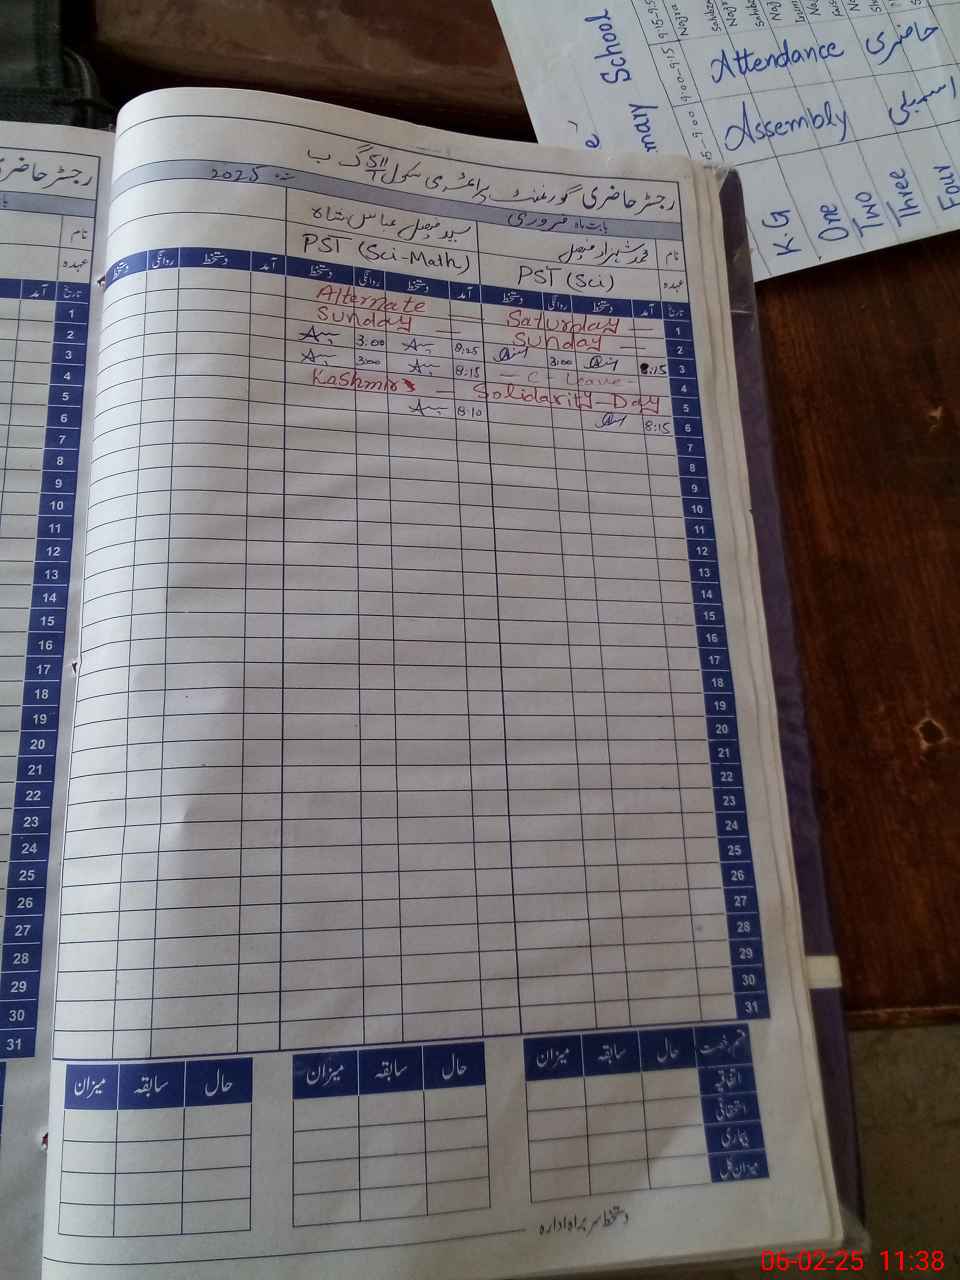 رجسٹر حاضری گورنمنٹ پرائمری سکول 511 گ ب
بابت ماہ فروری سنہ 2025
نام محمد شہزاد فیصل سید فیصل عباس شاہ
عہدہ PST (Sci) PST (Sci-Math)
تاریخ آمد دستخط روانگی دستخط آمد دستخط روانگی دستخط آمد دستخط روانگی دستخط
1 Saturday Alternate
2 Sunday Sunday
3 8:15 3:00 8:25 3:00
4 C - Leave - 8:15 3:00
5 Kashmir Solidarity Day
6 8:15 8:10
7
8
9
10
11
12
13
14
15
16
17
18
19
20
21
22
23
24
25
26
27
28
29
30
31
قسم رخصت حال سابقہ میزان حال سابقہ میزان حال سابقہ میزان
اتفاقیہ
استحقاقی
بیماری
میزان کل
دستخط سربراہ ادارہ
رجسٹر حاضری
نام
عہدہ
تاریخ آمد
1
2
3
4
5
6
7
8
9
10
11
12
13
14
15
16
17
18
19
20
21
22
23
24
25
26
27
28
29
30
31
School
Attendance حاضری
Assembly اسمبلی
K.G
One
Two
Three
Four
06-02-25 11:38